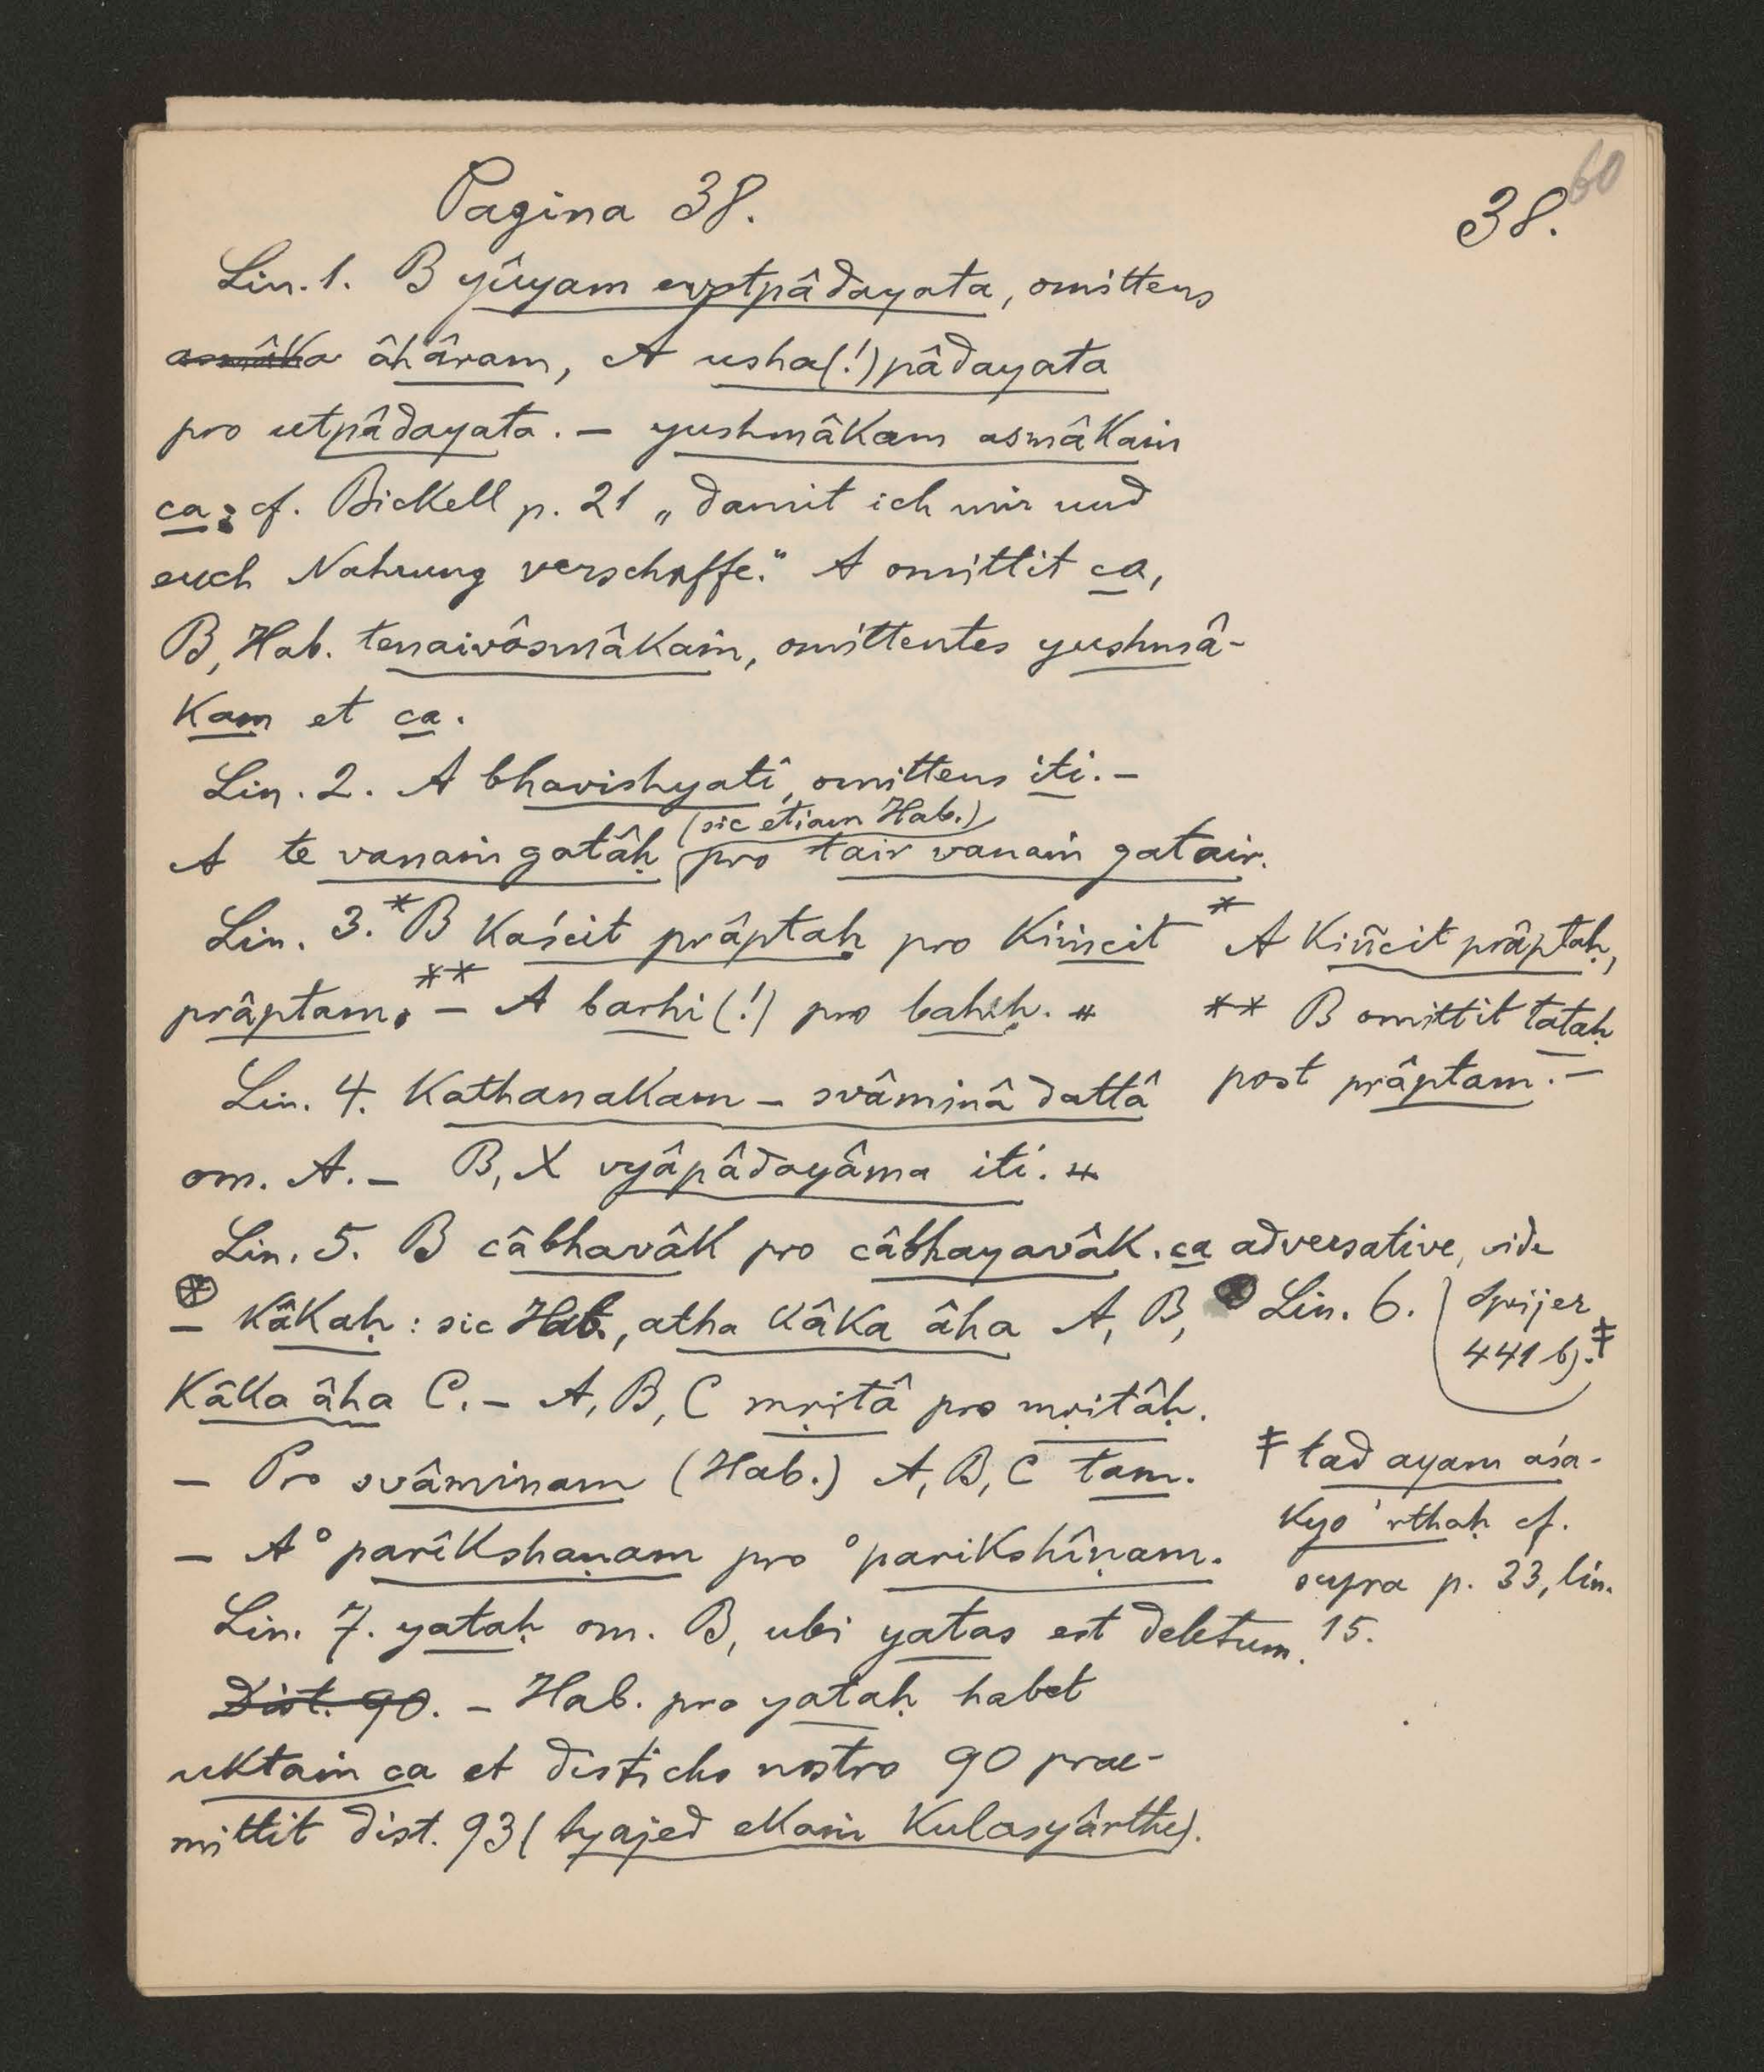 60
38.
Pagina 38.
Lin. 1. B yûyam evotpâdayata, omittens
asmâka âhâram, A usha(!)pâdayata
pro utpâdayata. – yushmâkam asmâkaṁ
ca: cf. Bickell p. 21 „damit ich mir und
euch Nahrung verschaffe." A omittit ca,
B, Hab. tenaivâsmâkaṁ, omittentes yushmâ-
kam et ca.
Lin. 2. A bhavishyatî, omittens iti. –
(sic etiam Hab.)
A te vanaṁ gatâḥ pro tair vanaṁ gatair.
Lin. 3. * B kaścit prâptaḥ pro kiṁcit
prâptam. ** – A barhi(!) pro bahiḥ. *
* A kiñcit prâptaḥ,
** B omittit tataḥ
post prâptam. –
Lin. 4. Kathanakam – svâminâ dattâ
om. A. – B, X vyâpâdayâma iti. *
Lin. 5. B câbhavâk pro câbhayavâk. ca adversative, vide
Spijer
441 b). ‡
⊛ – Kâkaḥ: sic Hab., atha kâka âha A, B, ⊛ Lin. 6.
Kâka âha C. – A, B, C mṛitâ pro mṛitâḥ.
– Pro svâminam (Hab.) A, B, C tam.
– A °parîkshaṇam pro °parikshîṇam.
‡ tad ayam aśa-
kyo 'rthaḥ cf.
supra p. 33, lin.
15.
Lin. 7. yataḥ om. B, ubi yatas est deletum.
Dist. 90. – Hab. pro yataḥ habet
uktaṁ ca et disticho nostro 90 prae-
mittit dist. 93 (tyajed ekaṁ kulasyârthe).